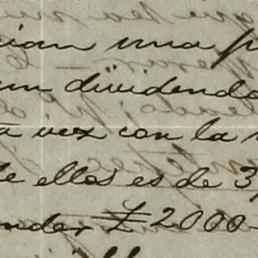 cian una p
un dividendo
a vez con la
de ellos es de 3
ender £2000-